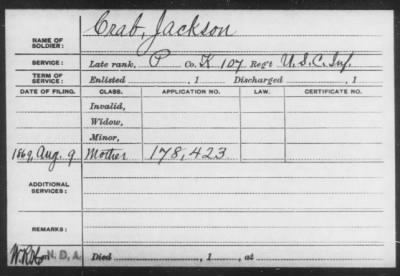 NAME OF SOLDIER: Crab, Jackson
SERVICE: Late rank, P Co. K 107 Reg't U.S.C. Inf.
TERM OF SERVICE: Enlisted , 1 Discharged , 1
DATE OF FILING. CLASS. APPLICATION NO. LAW. CERTIFICATE NO.
Invalid,
Widow,
Minor,
1869, Aug. 9 Mother 178,423
ADDITIONAL SERVICES:
REMARKS:
N. D. A. Died , 1 , at